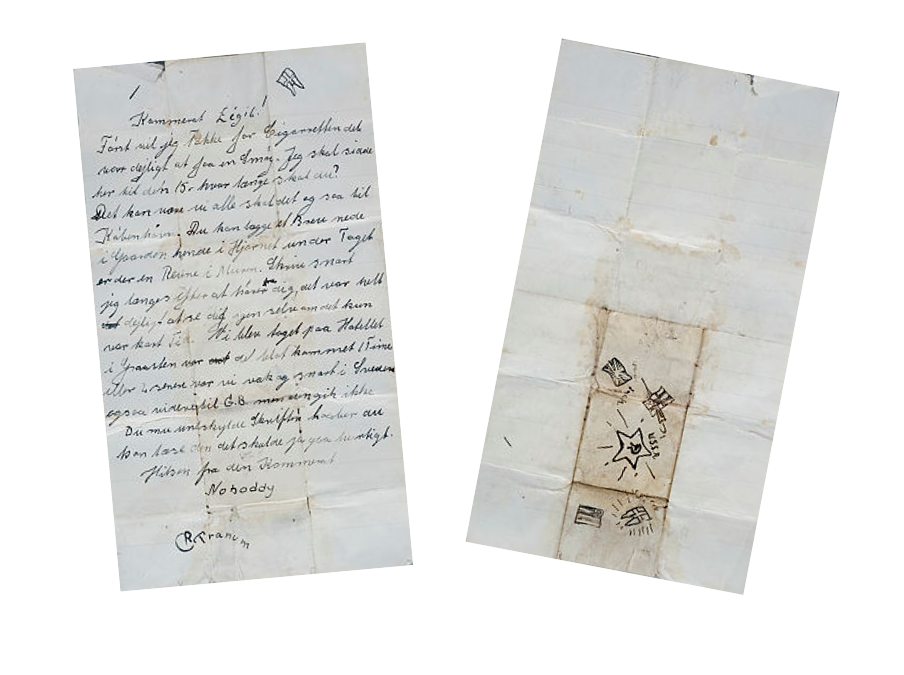 Kammerat Légit!
Først vil jeg Takke for Cigaretten det
var dejligt at faa en Smøg. Jeg skal sidde
her til den 15. hvor længe skal du?
Det kan være vi alle skal det og saa til
København. Du kan lægge et Brev nede
i Gaarden henne i Hjørnet under Taget
er der en Revne i Muren. Skriv snart
jeg længes efter at høre fra dig, det var helt
dejligt at se dig igen selv om det kun
var kort Tid. Vi blev taget paa Hotellet
i Graasten var det blot kommet 1 Time
eller 2 senere var vi væk og snart i Sverige
ogsaa videre til G.B. men engik ikke
Du maa undskylde Skriften haaber du
kan læse den det skulde jo gaa hurtigt.
Hilsen fra din Kammerat
Noboddy
R. Tranum
U.S.A